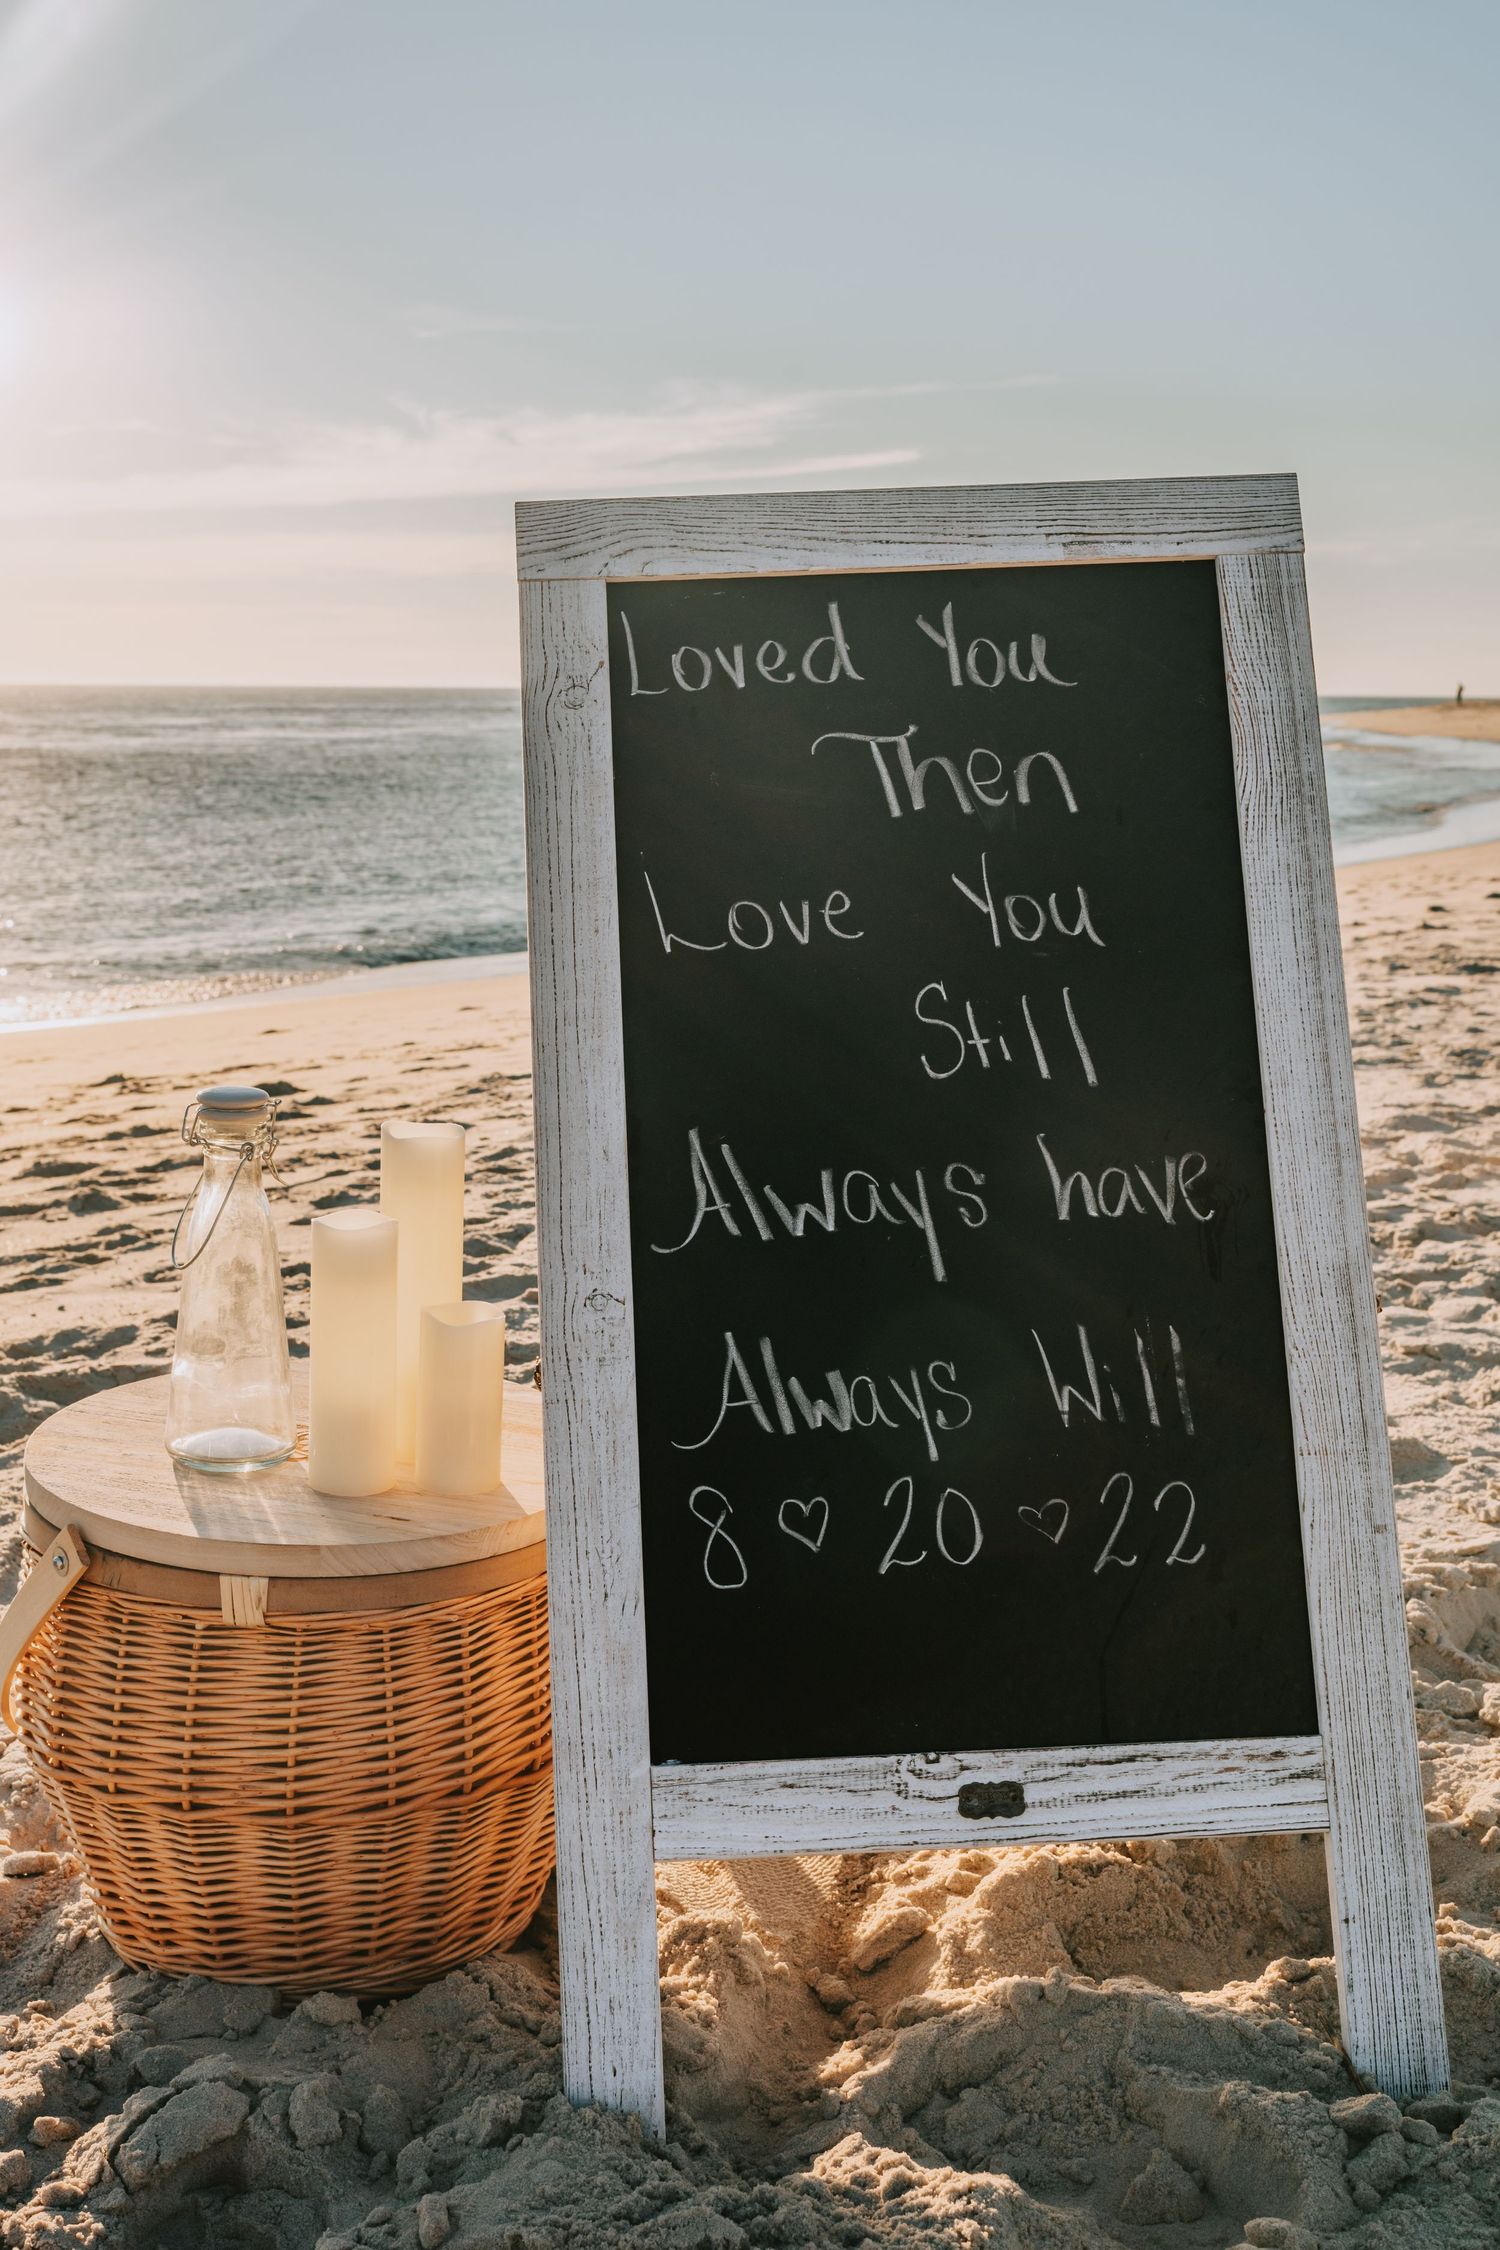 Loved You
Then
Love You
Still
Always have
Always Will
8 ♡ 20 ♡ 22